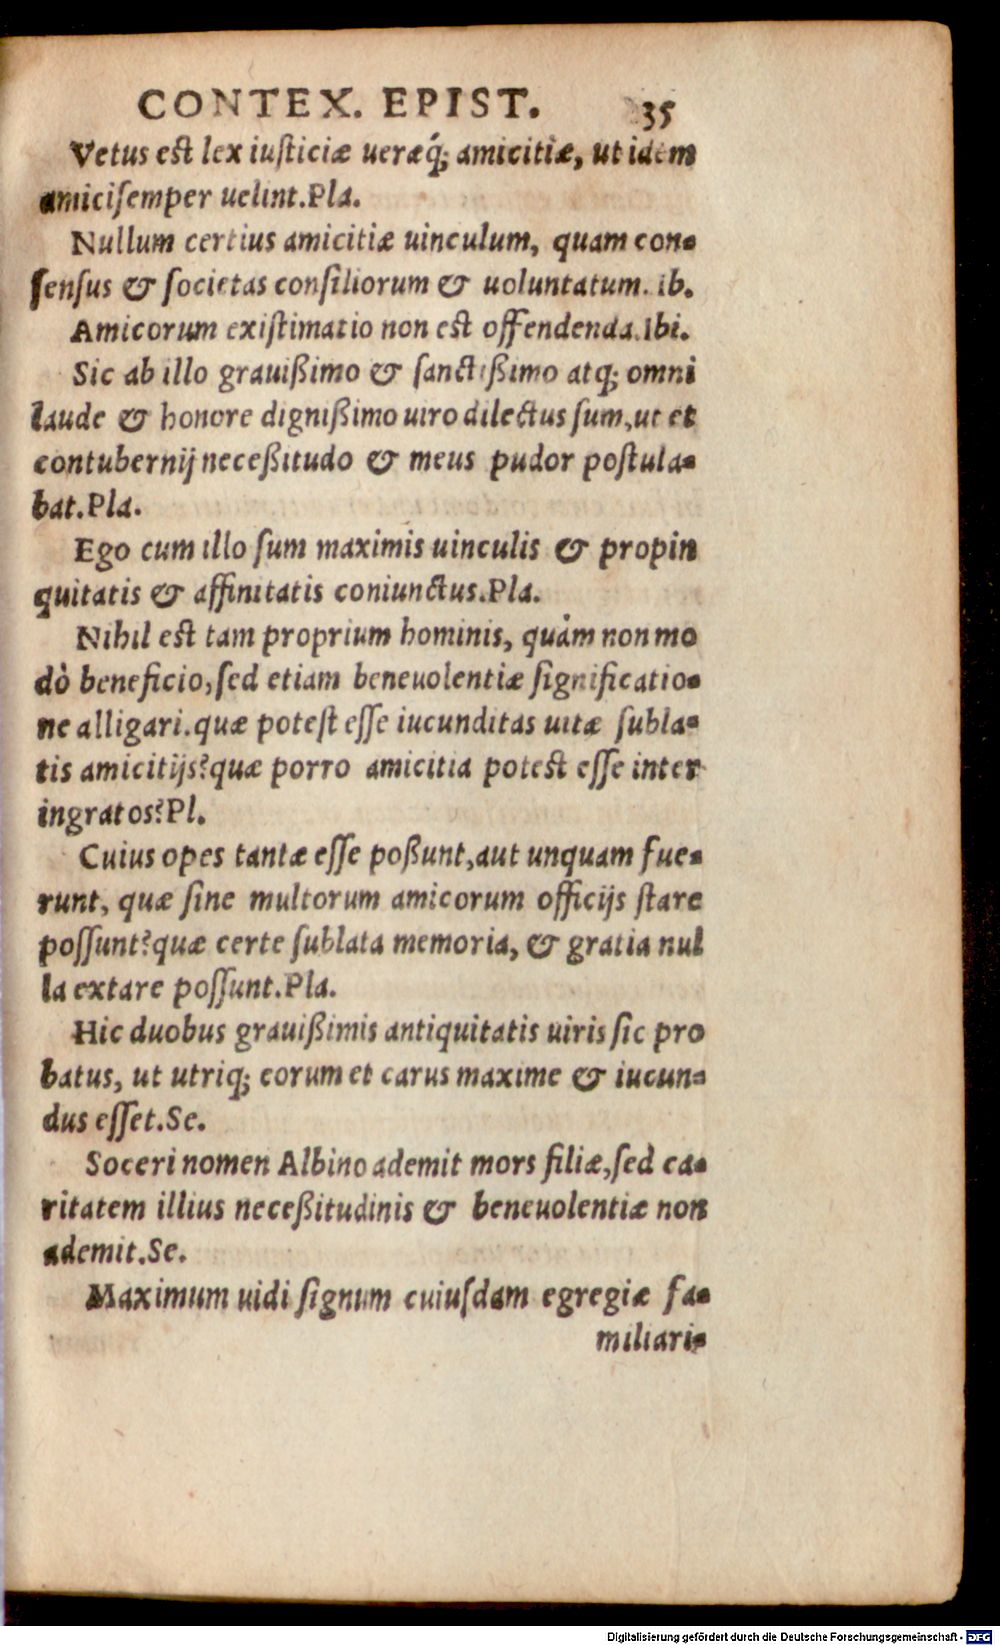 CONTEX. EPIST. 35
Vetus est lex iusticiæ ueræq́; amicitiæ, ut idem
amici semper uelint. Pla.
Nullum certius amicitiæ uinculum, quam con-
sensus & societas consiliorum & uoluntatum. ib.
Amicorum existimatio non est offendenda. Ibi.
Sic ab illo grauißimo & sanctißimo atq; omni
laude & honore dignißimo uiro dilectus sum, ut et
contubernij neceßitudo & meus pudor postula-
bat. Pla.
Ego cum illo sum maximis uinculis & propin
quitatis & affinitatis coniunctus. Pla.
Nihil est tam proprium hominis, quàm non mo
dò beneficio, sed etiam beneuolentiæ significatio-
ne alligari. quæ potest esse iucunditas uitæ subla-
tis amicitijs? quæ porro amicitia potest esse inter
ingratos? Pl.
Cuius opes tantæ esse poßunt, aut unquam fue-
runt, quæ sine multorum amicorum officijs stare
possunt? quæ certe sublata memoria, & gratia nul
la extare possunt. Pla.
Hic duobus grauißimis antiquitatis uiris sic pro
batus, ut utriq; eorum et carus maxime & iucun-
dus esset. Se.
Soceri nomen Albino ademit mors filiæ, sed ca-
ritatem illius neceßitudinis & beneuolentiæ non
ademit. Se.
Maximum uidi signum cuiusdam egregiæ fa-
miliari-
Digitalisierung gefördert durch die Deutsche Forschungsgemeinschaft - DFG